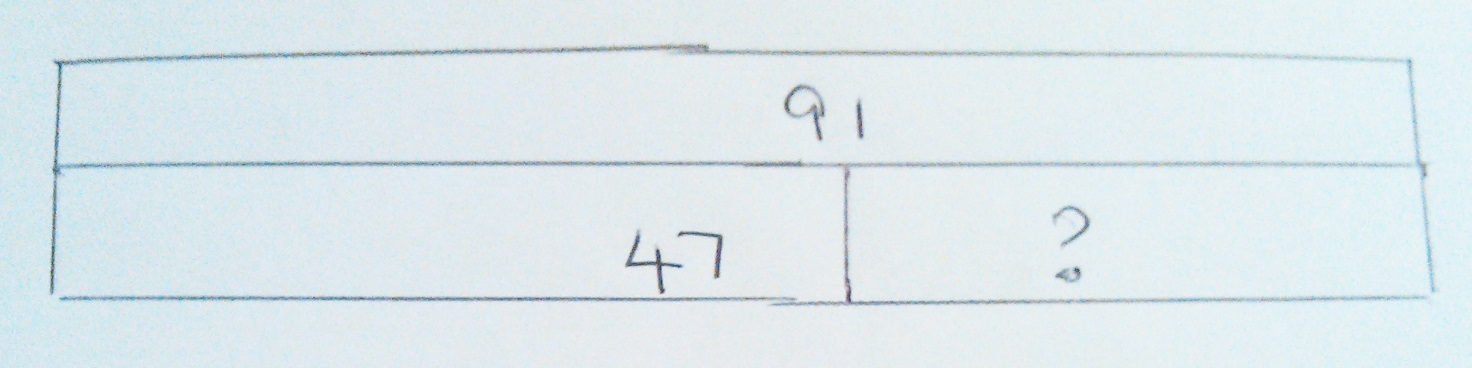 91
47 ?